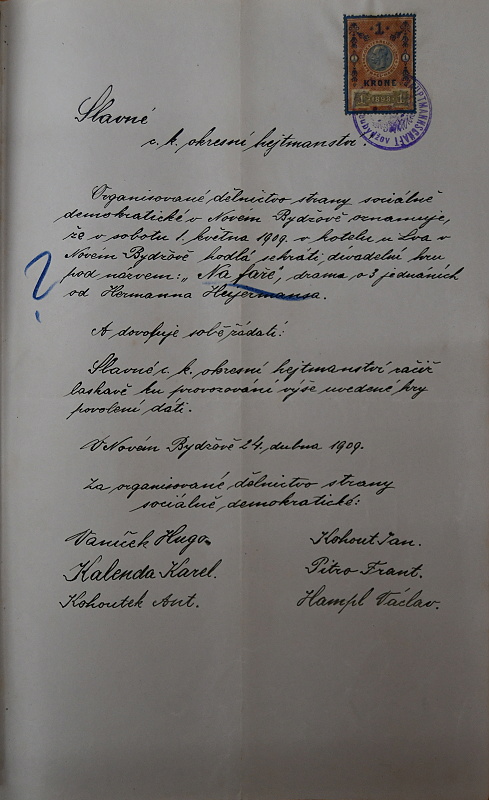 1
KRONE
1 1898 1
Slavné
c. k. okresní hejtmanství.
Organisované dělnictvo strany sociálně
demokratické v Novém Bydžově oznamuje,
že v sobotu 1. května 1909. v hotelu u Lva v
Novém Bydžově hodlá sehráti, divadelní hru
pod názvem: „Na faře“, drama o 3 jednáních
od Hermanna Heijermansa.
?
A dovoluje sobě žádati:
Slavné c. k. okresní hejtmanství račiž
laskavě ku provozování výše uvedené hry
povolení dáti.
V Novém Bydžově 24. dubna 1909.
Za organisované dělnictvo strany
sociálně demokratické:
Vaníček Hugo. Kohout Jan.
Kalenda Karel. Pitro Frant.
Kohoutek Ant. Hampl Václav.